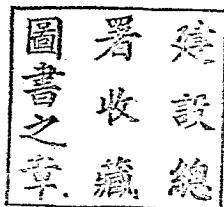 建設總
署收藏
圖書之章